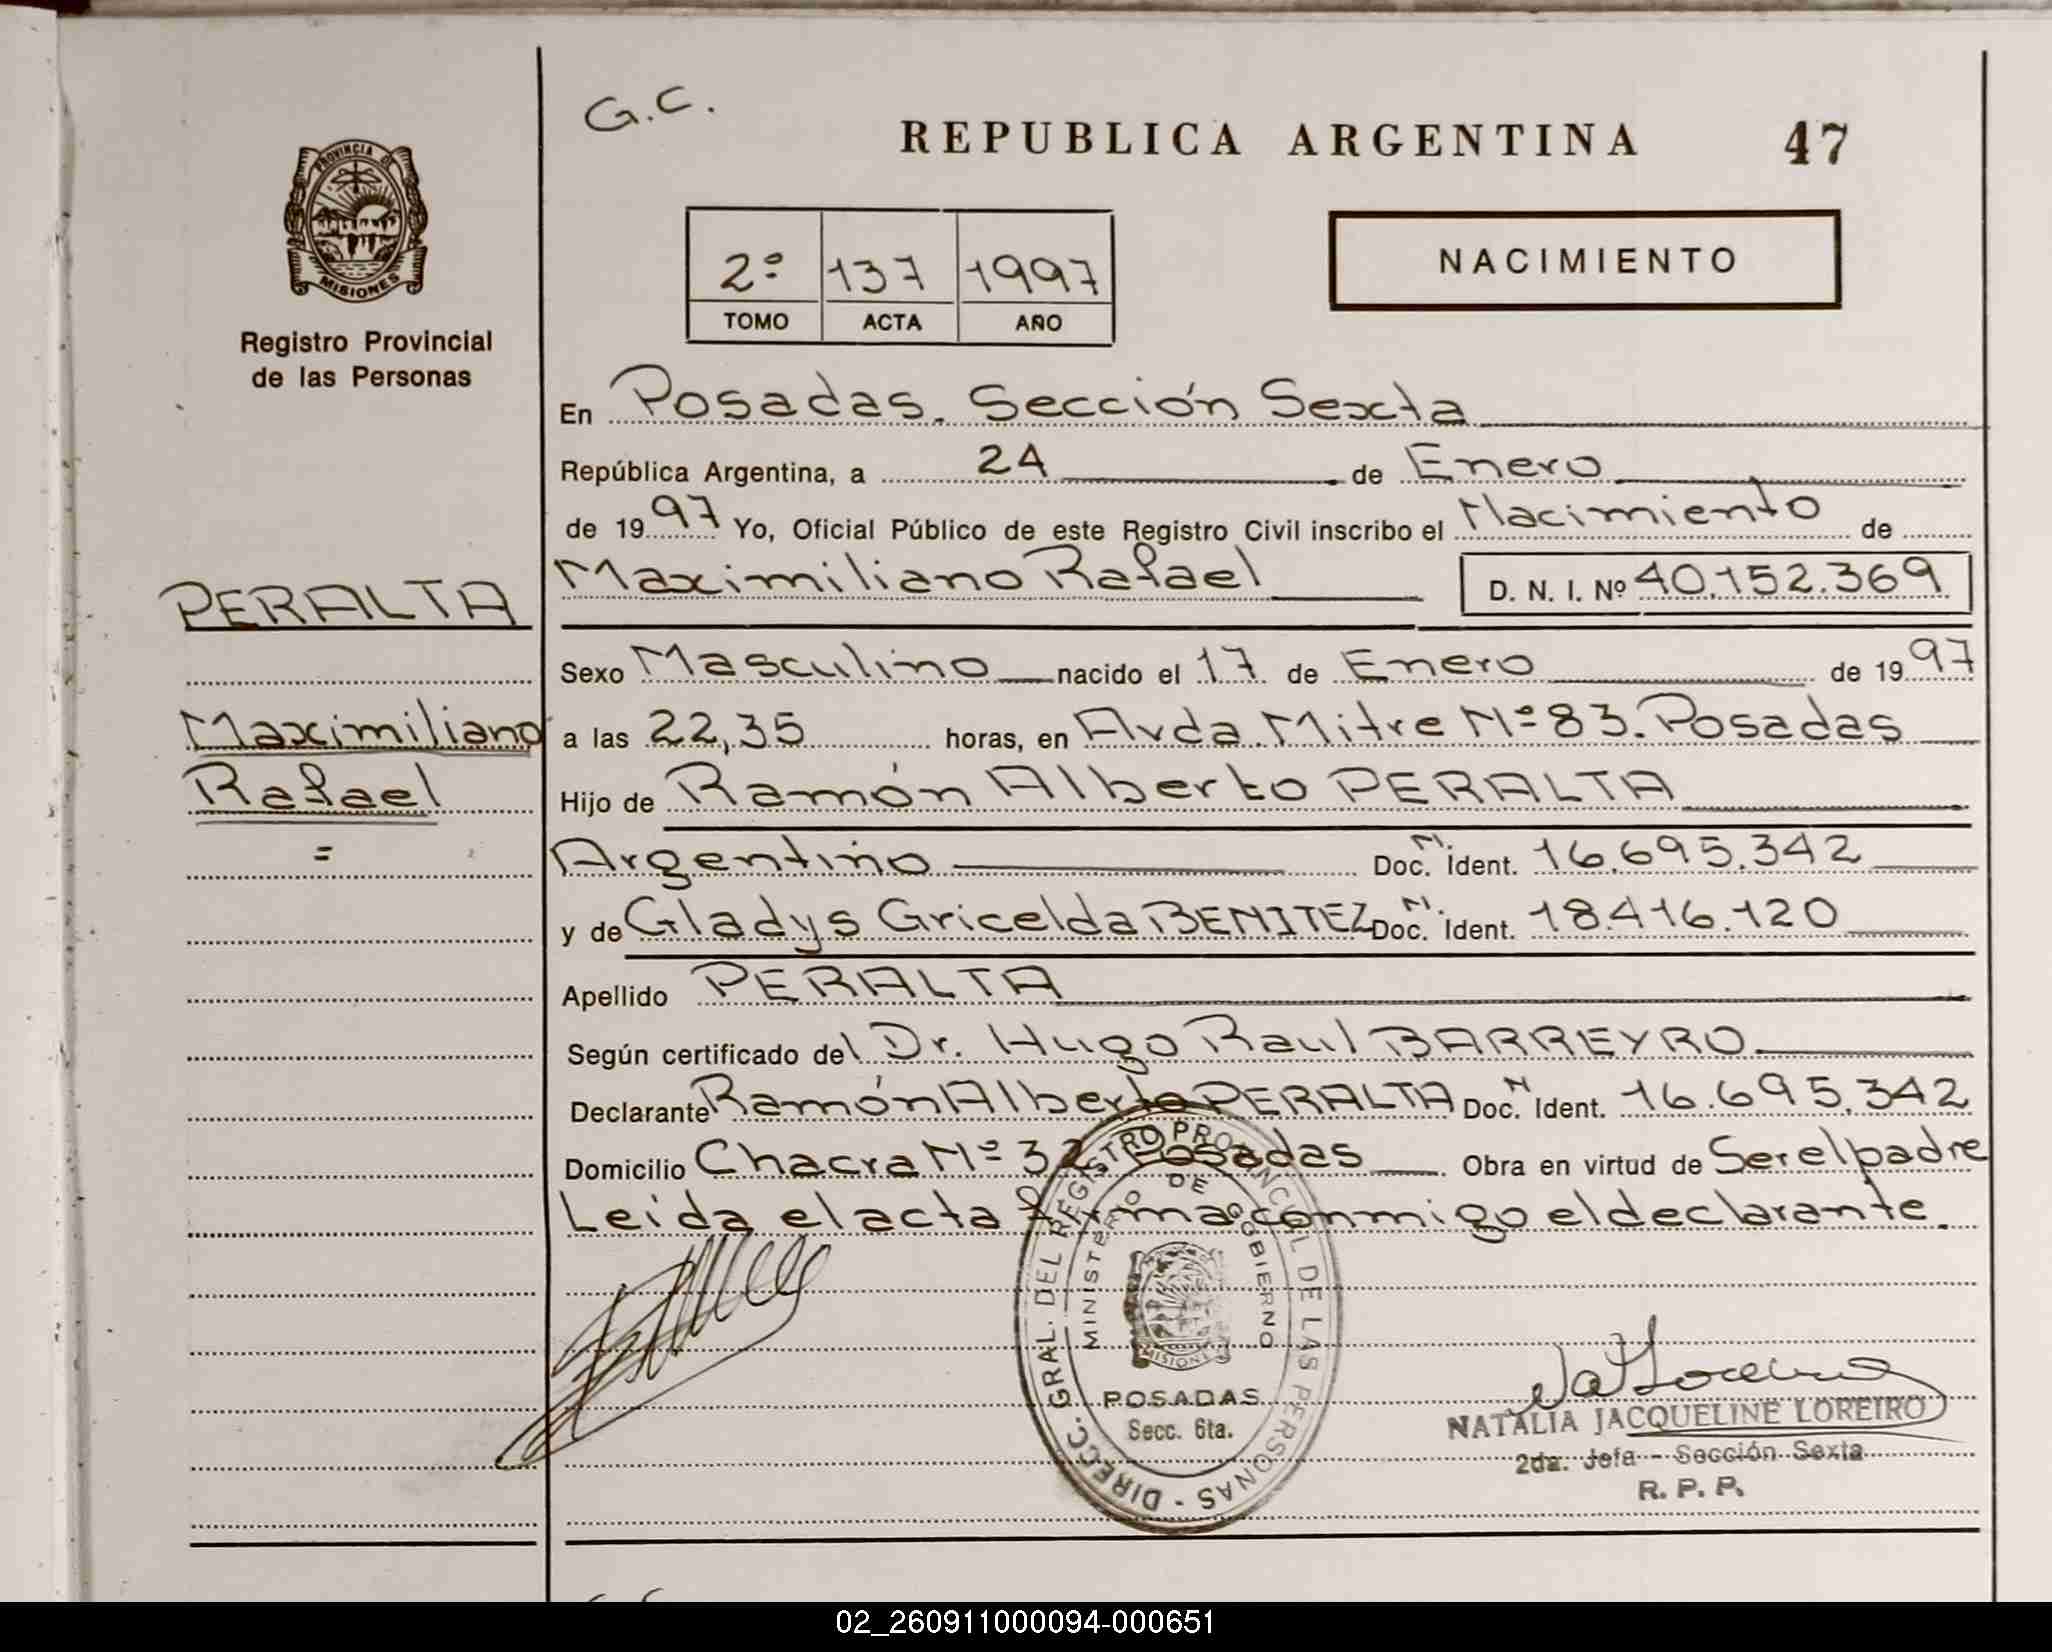 G.C.
REPUBLICA ARGENTINA 47
PROVINCIA DE
MISIONES
Registro Provincial
de las Personas
2º 137 1997
TOMO ACTA AÑO
NACIMIENTO
En Posadas. Sección Sexta
República Argentina, a 24 de Enero
de 1997 Yo, Oficial Público de este Registro Civil inscribo el Nacimiento de
PERALTA
Maximiliano Rafael D. N. I. Nº 40.152.369
Sexo Masculino nacido el 17 de Enero de 1997
Maximiliano
a las 22,35 horas, en Avda. Mitre Nº 83. Posadas
Rafael
Hijo de Ramón Alberto PERALTA
=
Argentino Doc. N. Ident. 16.695.342
y de Gladys Gricelda BENITEZ Doc. N. Ident. 18.416.120
Apellido PERALTA
Según certificado del Dr. Hugo Raul BARREYRO
Declarante Ramón Alberto PERALTA Doc. N Ident. 16.695.342
Domicilio Chacra Nº 32 Posadas Obra en virtud de Ser el padre
Leida el acta firma conmigo el declarante.
DIRECC. GRAL. DEL REGISTRO PROVINCIAL DE LAS PERSONAS -
MINISTERIO DE GOBIERNO
MISIONES
POSADAS
Secc. 6ta.
NATALIA JACQUELINE LOREIRO
2da. Jefa - Sección Sexta
R. P. P.
02_260911000094-000651